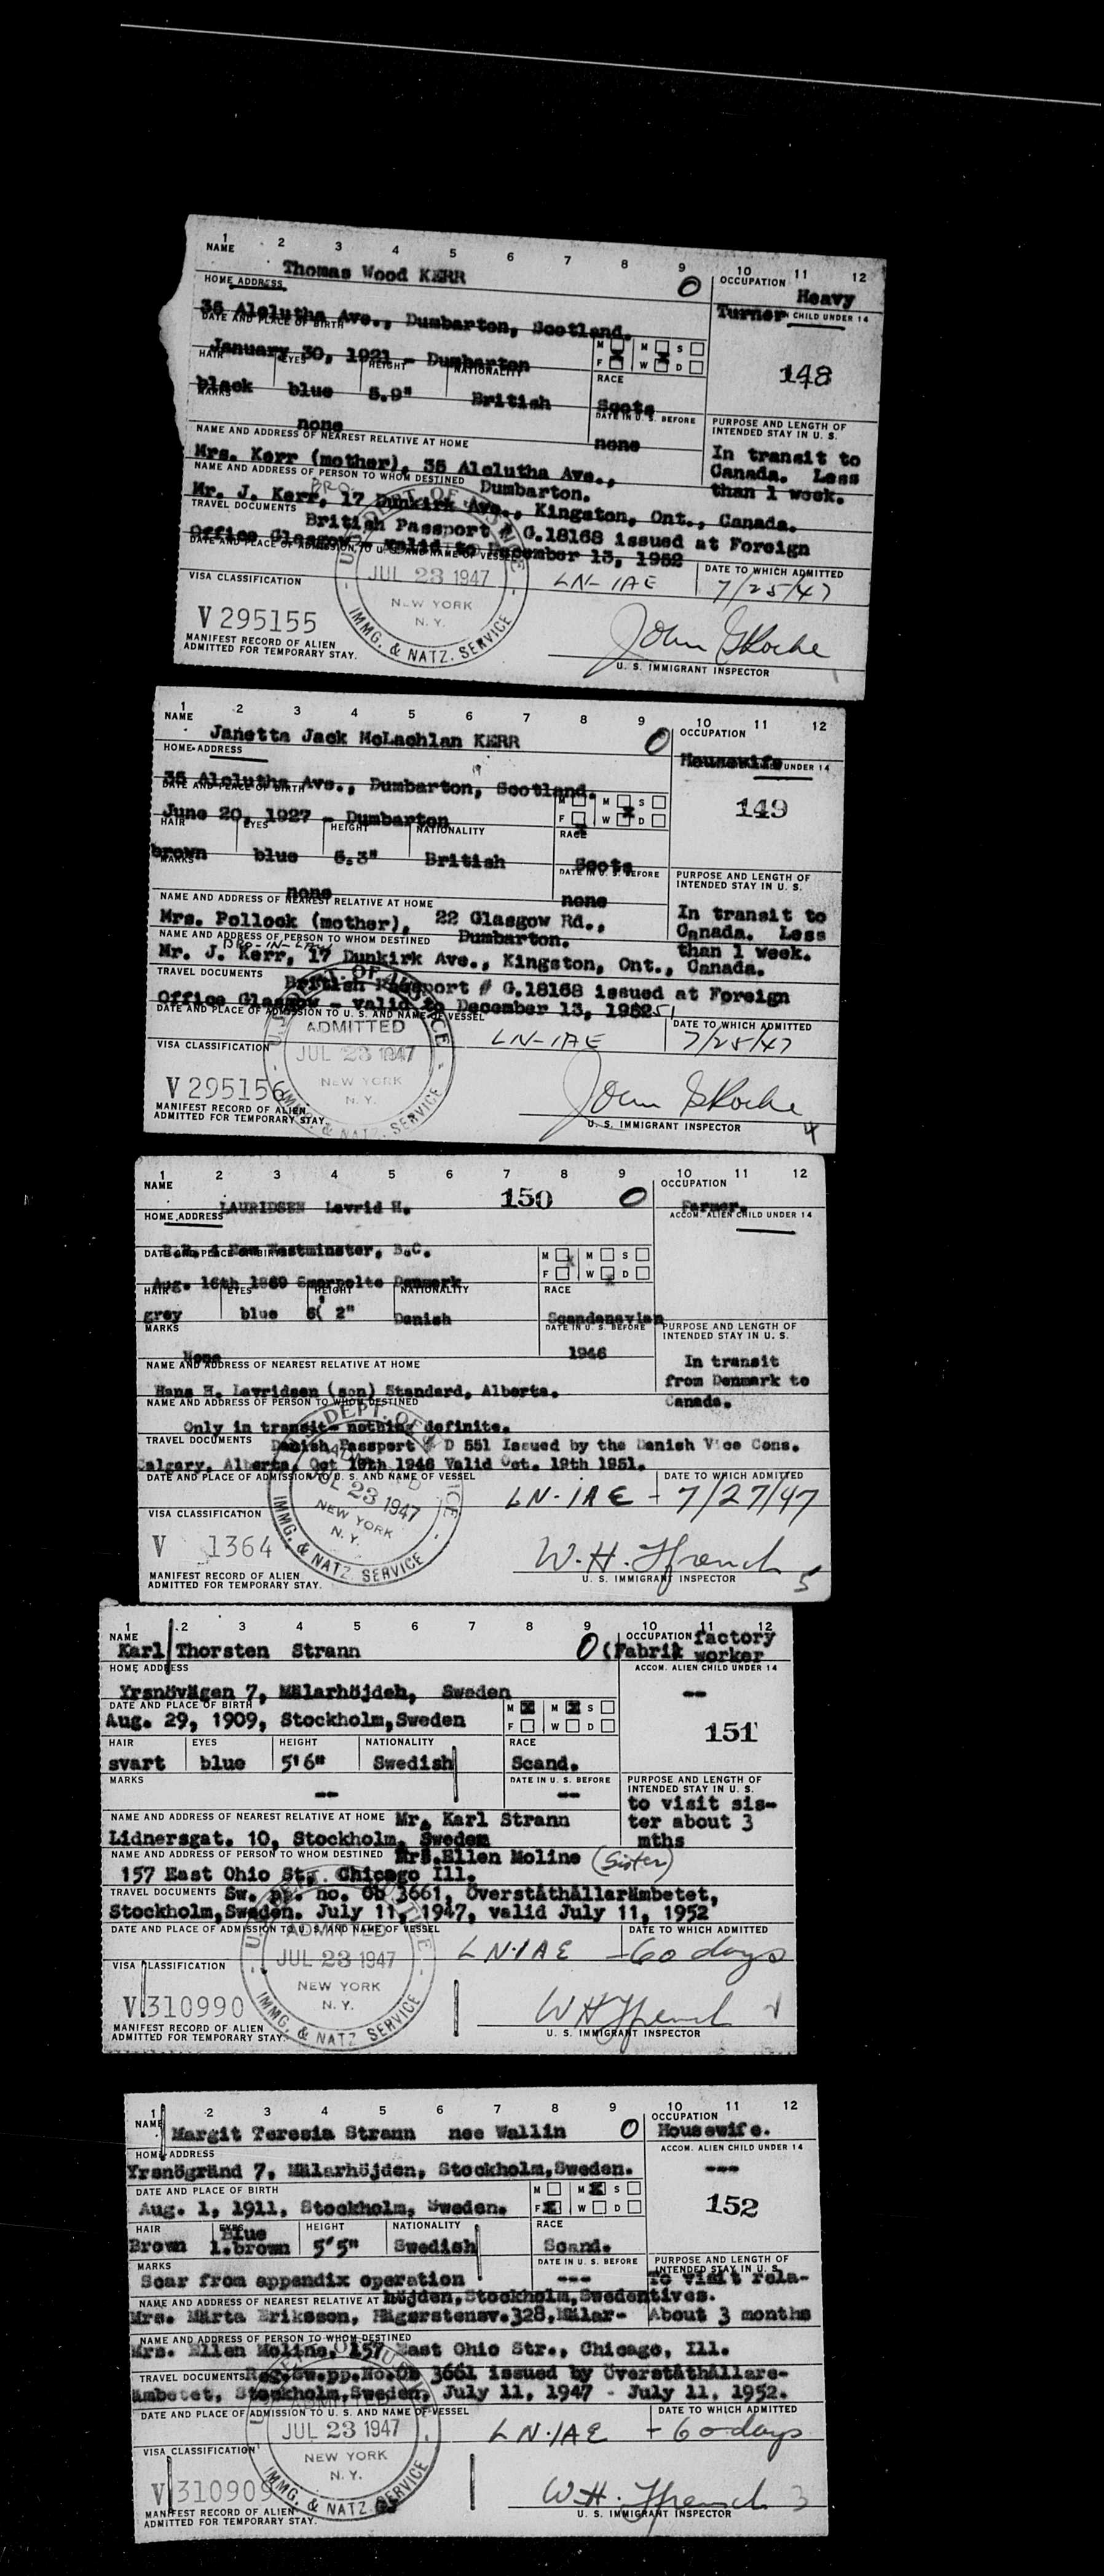 1 2 3 4 5 6 7 8 9 10 11 12
NAME
Thomas Wood KERR
O
OCCUPATION
Heavy
Turner
CHILD UNDER 14
HOME ADDRESS
35 Alclutha Ave., Dumbarton, Scotland.
DATE AND PLACE OF BIRTH
January 30, 1921 - Dumbarton
M M S
F W D
148
HAIR EYES HEIGHT NATIONALITY RACE
black blue 5.9" British Scots
MARKS DATE IN U. S. BEFORE
none none
PURPOSE AND LENGTH OF
INTENDED STAY IN U. S.
In transit to
Canada. Less
than 1 week.
NAME AND ADDRESS OF NEAREST RELATIVE AT HOME
Mrs. Kerr (mother), 35 Alclutha Ave.,
Dumbarton.
NAME AND ADDRESS OF PERSON TO WHOM DESTINED
BRO.
Mr. J. Kerr, 17 Dunkirk Ave., Kingston, Ont., Canada.
TRAVEL DOCUMENTS
British Passport # G.18168 issued at Foreign
Office Glasgow - valid to December 13, 1952
DATE AND PLACE OF ADMISSION TO U. S. AND NAME OF VESSEL
DATE TO WHICH ADMITTED
JUL 23 1947
NEW YORK
N. Y.
IMMG. & NATZ. SERVICE
LN-IAE 7/25/47
VISA CLASSIFICATION
V 295155
MANIFEST RECORD OF ALIEN
ADMITTED FOR TEMPORARY STAY.
John G Roche
U. S. IMMIGRANT INSPECTOR
1 2 3 4 5 6 7 8 9 10 11 12
NAME
Janetta Jack McLachlan KERR
O
OCCUPATION
Housewife
UNDER 14
HOME ADDRESS
35 Alclutha Ave., Dumbarton, Scotland.
DATE AND PLACE OF BIRTH
June 20, 1927 - Dumbarton
M M S
F W D
149
HAIR EYES HEIGHT NATIONALITY RACE
brown blue 5.3" British Scots
MARKS DATE IN U. S. BEFORE
none none
PURPOSE AND LENGTH OF
INTENDED STAY IN U. S.
In transit to
Canada. Less
than 1 week.
NAME AND ADDRESS OF NEAREST RELATIVE AT HOME
Mrs. Pollock (mother), 22 Glasgow Rd.,
Dumbarton.
NAME AND ADDRESS OF PERSON TO WHOM DESTINED
BRO-IN-LAW
Mr. J. Kerr, 17 Dunkirk Ave., Kingston, Ont., Canada.
TRAVEL DOCUMENTS
British Passport # G.18168 issued at Foreign
Office Glasgow - valid to December 13, 1952 51
DATE AND PLACE OF ADMISSION TO U. S. AND NAME OF VESSEL
DATE TO WHICH ADMITTED
ADMITTED
JUL 23 1947
NEW YORK
N. Y.
IMMG. & NATZ. SERVICE
LN-IAE 7/25/47
VISA CLASSIFICATION
V 295156
MANIFEST RECORD OF ALIEN
ADMITTED FOR TEMPORARY STAY
John G Roche
U. S. IMMIGRANT INSPECTOR
4
1 2 3 4 5 6 7 8 9 10 11 12
NAME
150 O
OCCUPATION
LAURIDSEN Lavrid H.
Farmer.
HOME ADDRESS
ACCOM. ALIEN CHILD UNDER 14
R.R. 1 New Westminster, B.C.
DATE AND PLACE OF BIRTH
Aug. 16th 1869 Denmark
M M S
F W D
HAIR EYES HEIGHT NATIONALITY RACE
grey blue 6' 2" Danish Scandanavian
MARKS DATE IN U. S. BEFORE
None 1946
PURPOSE AND LENGTH OF
INTENDED STAY IN U. S.
In transit
from Denmark to
Canada.
NAME AND ADDRESS OF NEAREST RELATIVE AT HOME
Hans H. Lavridsen (son) Standard, Alberta.
NAME AND ADDRESS OF PERSON TO WHOM DESTINED
Only in transit- nothing definite.
TRAVEL DOCUMENTS
Danish Passport # D 551 Issued by the Danish Vice Cons.
Calgary, Alberta, Oct 19th 1946 Valid Oct. 19th 1951.
DATE AND PLACE OF ADMISSION TO U. S. AND NAME OF VESSEL
DATE TO WHICH ADMITTED
DEPT. OF
JUL 23 1947
NEW YORK
N. Y.
IMMG. & NATZ. SERVICE
LN-IAE - 7/27/47
VISA CLASSIFICATION
V 1364
MANIFEST RECORD OF ALIEN
ADMITTED FOR TEMPORARY STAY.
W. H. Ffrench
U. S. IMMIGRANT INSPECTOR
5
1 2 3 4 5 6 7 8 9 10 11 12
NAME
Karl Thorsten Strann
O
OCCUPATION factory
(Fabrik worker
HOME ADDRESS
ACCOM. ALIEN CHILD UNDER 14
--
Yrsnövägen 7, Mälarhöjdeh, Sweden
DATE AND PLACE OF BIRTH
Aug. 29, 1909, Stockholm,Sweden
M M S
F W D
151
HAIR EYES HEIGHT NATIONALITY RACE
svart blue 5'6" Swedish Scand.
MARKS DATE IN U. S. BEFORE
-- --
PURPOSE AND LENGTH OF
INTENDED STAY IN U. S.
to visit sis-
ter about 3
mths
NAME AND ADDRESS OF NEAREST RELATIVE AT HOME Mr. Karl Strann
Lidnersgat. 10, Stockholm, Sweden
NAME AND ADDRESS OF PERSON TO WHOM DESTINED Mrs.Ellen Moline (Sister)
157 East Ohio Str. Chicago Ill.
TRAVEL DOCUMENTS Sw. pp. no. Ob 3661, Överståthållarämbetet,
Stockholm,Sweden. July 11, 1947, valid July 11, 1952
DATE AND PLACE OF ADMISSION TO U. S. AND NAME OF VESSEL
DATE TO WHICH ADMITTED
ADMITTED
JUL 23 1947
NEW YORK
N. Y.
IMMG. & NATZ SERVICE
LN-IAE -60 days
VISA CLASSIFICATION
V 310990
MANIFEST RECORD OF ALIEN
ADMITTED FOR TEMPORARY STAY.
W H Ffrench
U. S. IMMIGRANT INSPECTOR
1 2 3 4 5 6 7 8 9 10 11 12
NAME
Margit Teresia Strann nee Wallin
O
OCCUPATION
Housewife.
HOME ADDRESS
ACCOM. ALIEN CHILD UNDER 14
---
Yrsnögränd 7, Mälarhöjden, Stockholm,Sweden.
DATE AND PLACE OF BIRTH
Aug. 1, 1911, Stockholm, Sweden.
M M S
F W D
152
HAIR EYES HEIGHT NATIONALITY RACE
Blue
Brown l.brown 5'5" Swedish Scand.
MARKS DATE IN U. S. BEFORE
Scar from appendix operation ---
PURPOSE AND LENGTH OF
INTENDED STAY IN U. S.
To visit rela-
tives.
About 3 months
NAME AND ADDRESS OF NEAREST RELATIVE AT höjden,Stockholm,Sweden
Mrs. Märta Eriksson, Hägerstensv.328,Mälar-
NAME AND ADDRESS OF PERSON TO WHOM DESTINED
Mrs. Ellen Moline, 157 East Ohio Str., Chicago, Ill.
TRAVEL DOCUMENTS Reg.Sw.pp.No.Ob 3661 issued by Överståthållare-
ämbetet, Stockholm,Sweden, July 11, 1947 - July 11, 1952.
DATE AND PLACE OF ADMISSION TO U. S. AND NAME OF VESSEL
DATE TO WHICH ADMITTED
JUL 23 1947
NEW YORK
N. Y.
IMMG. & NATZ SERVICE
LN-IAE - 60 days
VISA CLASSIFICATION
V 310909
MANIFEST RECORD OF ALIEN
ADMITTED FOR TEMPORARY STAY.
W.H. Ffrench
U. S. IMMIGRANT INSPECTOR
3